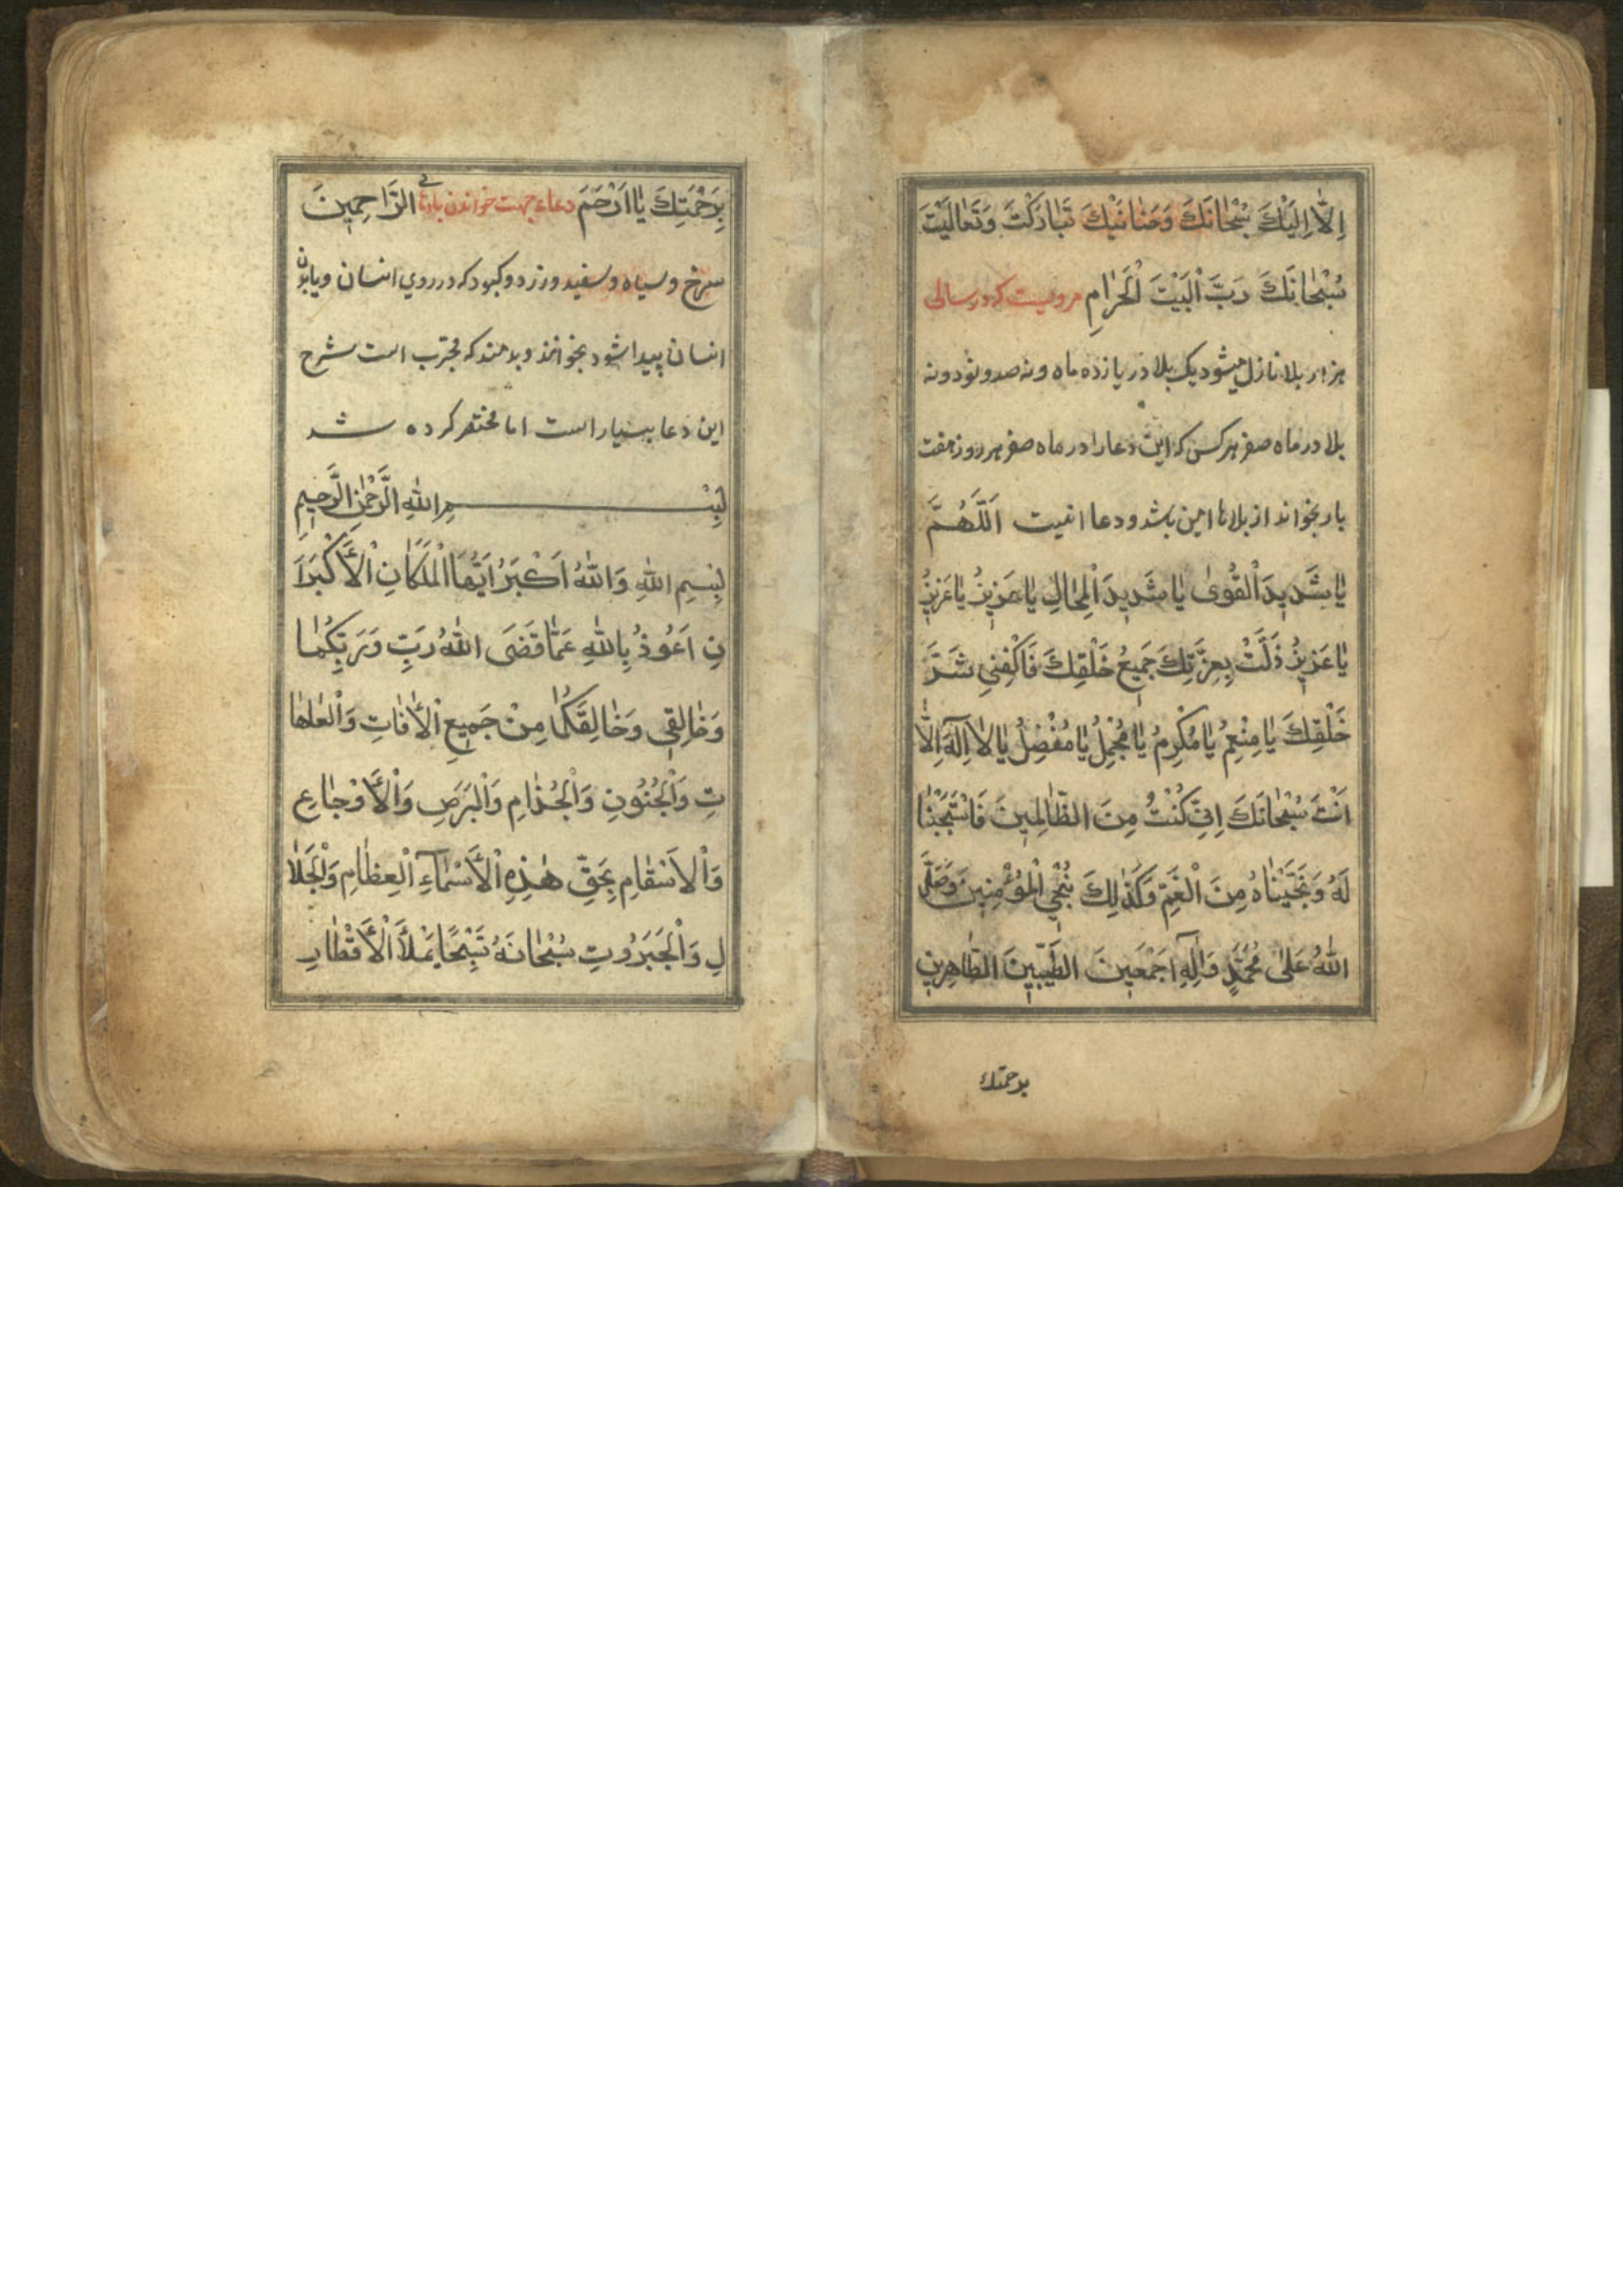 اِلّٰا اِلَيْكَ سُبْحٰانَكَ وَحَنٰانَيْكَ تَبٰارَكْتَ وَتَعٰالَيْتَ
سُبْحٰانَكَ رَبَّ الْبَيْتَ الْحَرٰامِ مرویست که در سالی
هزار بلا نازل میشود یک بلا در یازده ماه و نه صد و نود و نه
بلا در ماه صفر هر کس که این دعا را در ماه صفر هر روز هفت
بار بخواند از بلاها امین باشد و دعا اینست اَللّٰهُمَّ
يٰا شَدِيدَ الْقُوىٰ يٰا شَدِيدَ الْمِحٰالِ يٰا عَزِيزُ يٰا عَزِيزُ
يٰا عَزِيزُ ذَلَّتْ بِعِزَّتِكَ جَمِيعُ خَلْقِكَ فَاكْفِنِي شَرَّ
خَلْقِكَ يٰا مِنْعِمُ يٰا مُكْرِمُ يٰا مُجْمِلُ يٰا مُفْضِلُ يٰا لٰا اِلٰهَ اِلّٰا
اَنْتَ سُبْحٰانَكَ اِنِّي كُنْتُ مِنَ الظّٰالِمِينَ فَاسْتَجَبْنٰا
لَهُ وَنَجَّيْنٰاهُ مِنَ الْغَمِّ وَكَذٰلِكَ نُنْجِي الْمُؤْمِنِينَ وَصَلَّى
اللّٰهُ عَلىٰ مُحَمَّدٍ وَاٰلِهِ اَجْمَعِينَ الطَّيِّبِينَ الطّٰاهِرِينَ
برحمتك
بِرَحْمَتِكَ يٰا اَرْحَمَ دعاء جهت خواندن بادهای الرّٰاحِمِينَ
سرخ و سیاه و سفید و زرد و کبود که در روی انسان و یا بدن
انسان پیدا شود بخوانند و بدمند که مجرّب است شرح
این دعا بسیار است اما مختصر کرده شد
بِسْمِ اللّٰهِ الرَّحْمٰنِ الرَّحِيمِ
بِسْمِ اللّٰهِ وَاللّٰهُ اَكْبَرُ اَيُّهَا الْمَلَكٰانِ الْاَكْبَرَا
نِ اَعُوذُ بِاللّٰهِ عَمّٰا قَضَى اللّٰهُ رَبِّي وَرَبِّكُمٰا
وَخٰالِقِي وَخٰالِقَكُمٰا مِنْ جَمِيعِ الْاٰفٰاتِ وَالْعٰاهٰا
تِ وَالْجُنُونِ وَالْجُذٰامِ وَالْبَرَصِ وَالْاَوْجٰاعِ
وَالْاَسْقٰامِ بِحَقِّ هٰذِهِ الْاَسْمٰآءِ الْعِظٰامِ وَالْجَلٰا
لِ وَالْجَبَرُوتِ سُبْحٰانَهُ تَسْبِيْحًا يَمْلَأُ الْاَقْطٰارِ